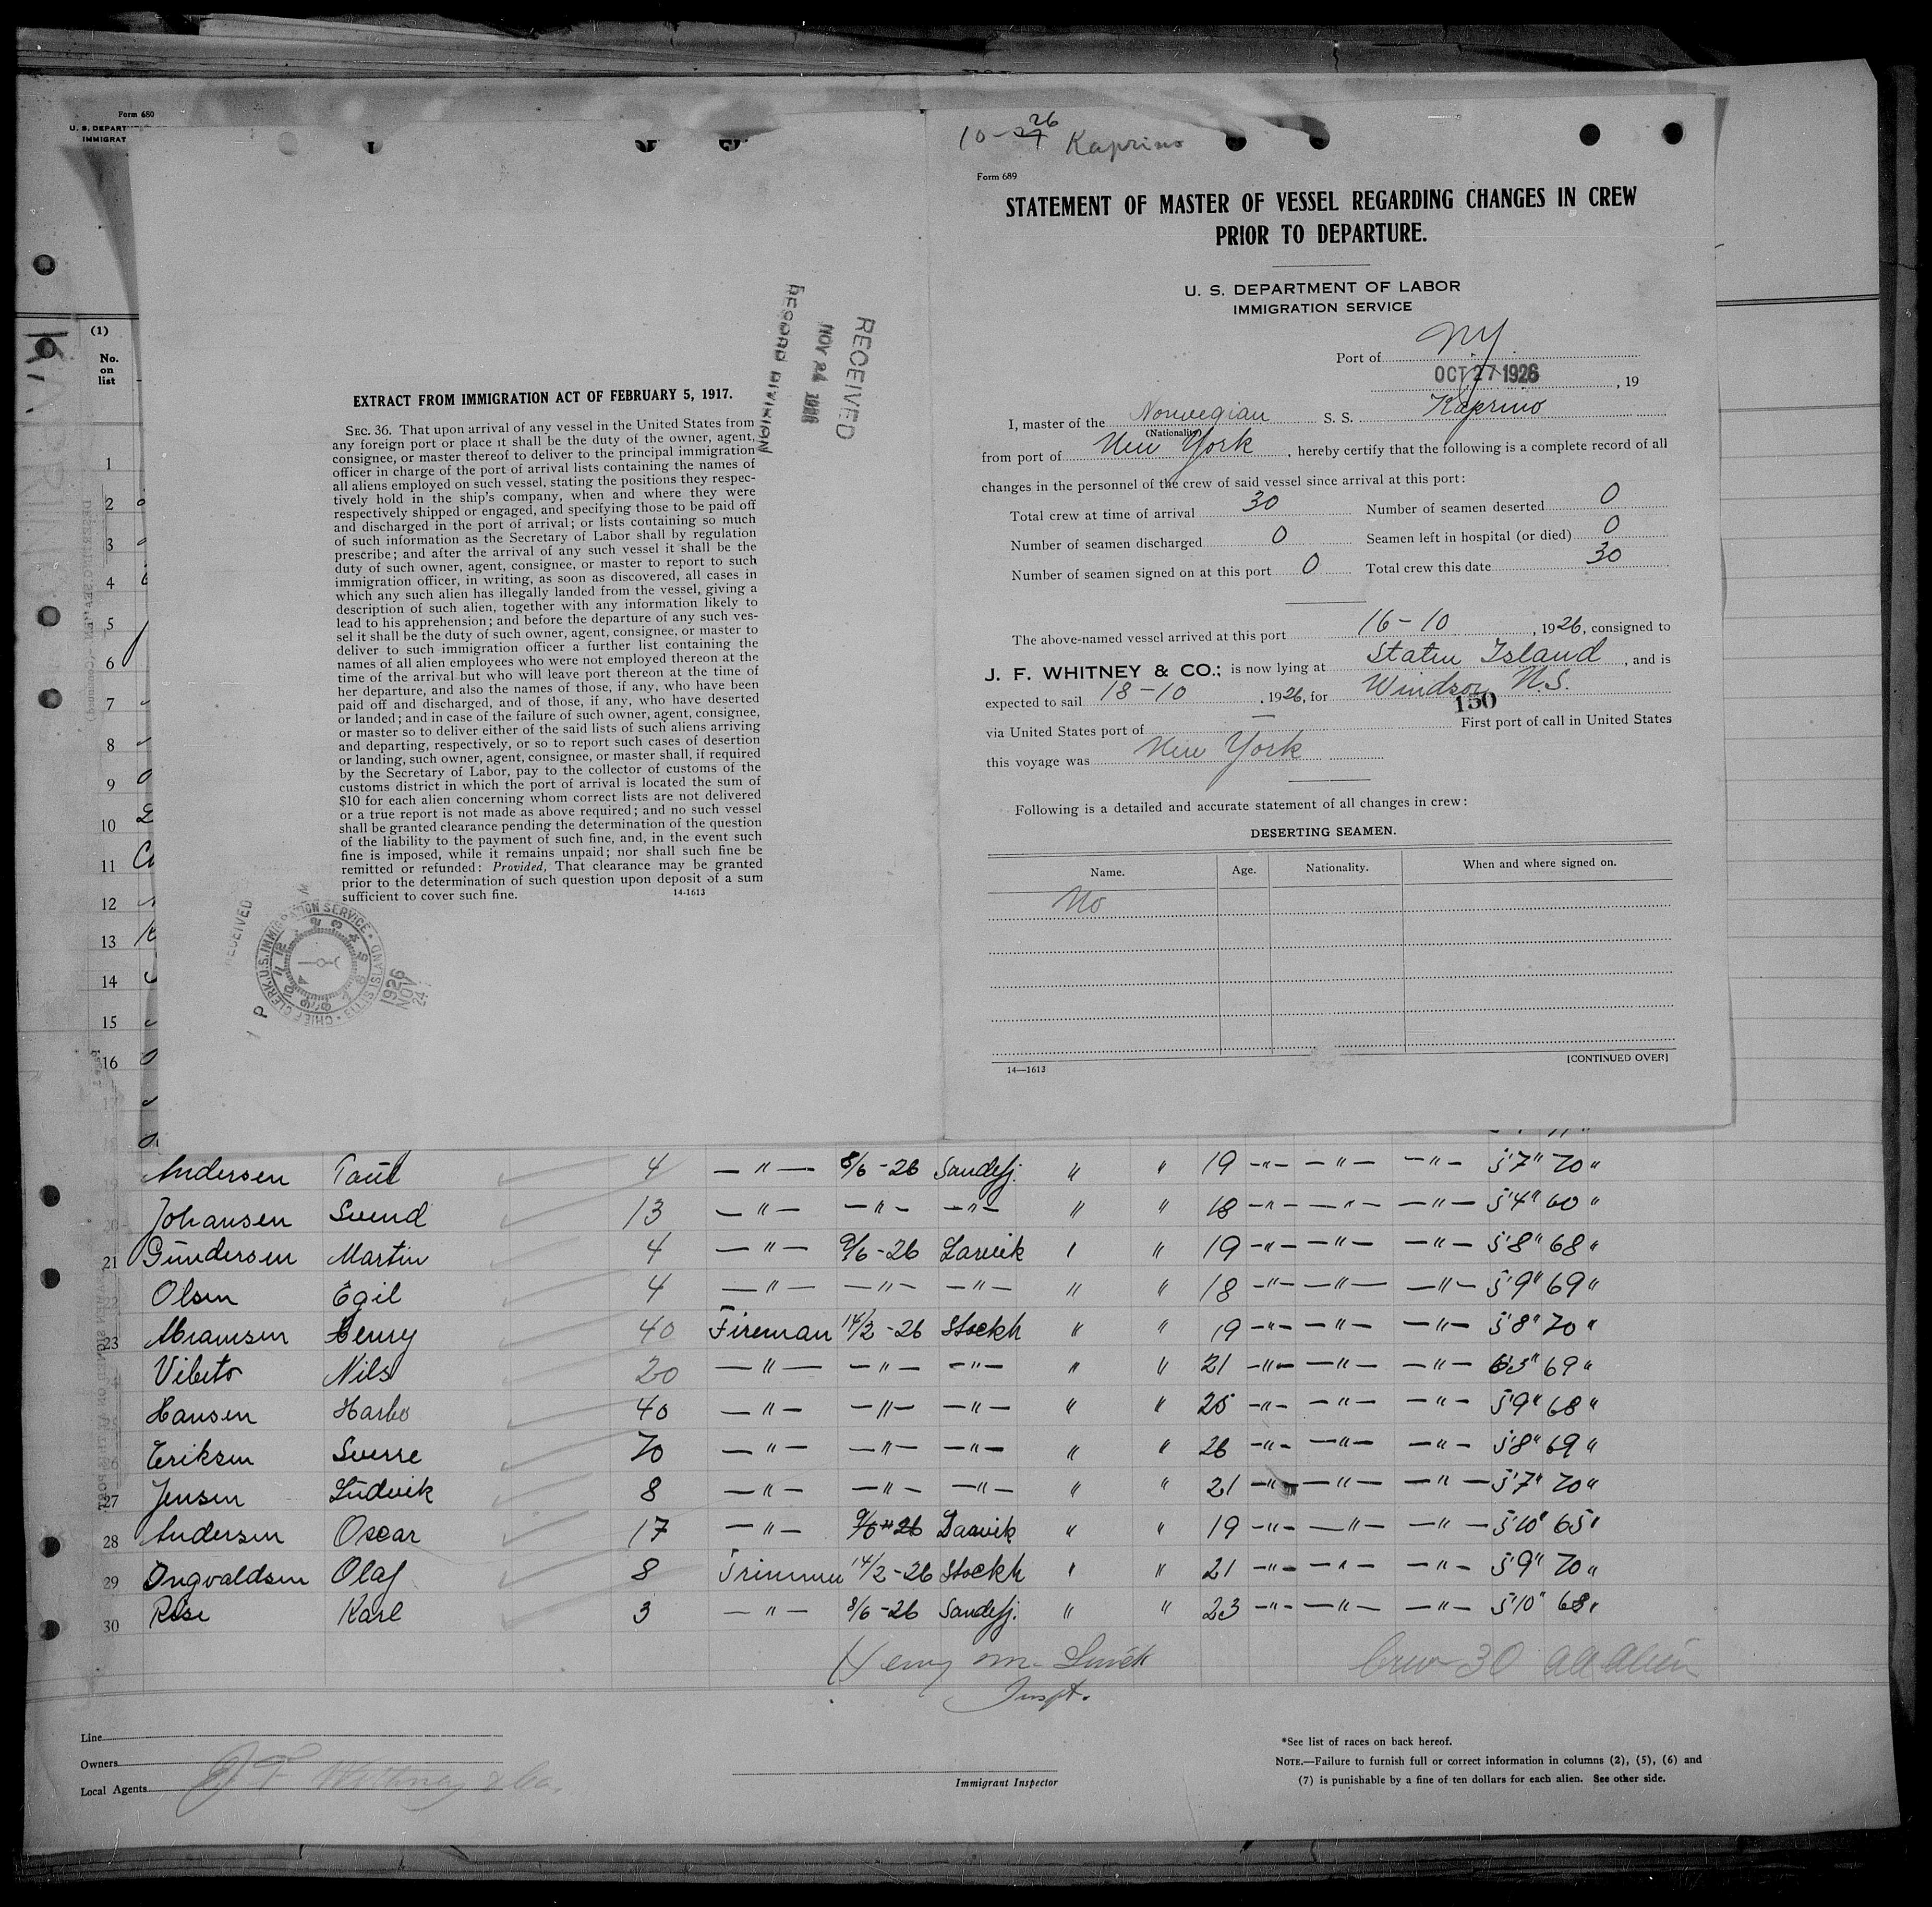 Form 680
U. S. DEPART
IMMIGRAT
(1)
No.
on
list
1
2
3
4
5
6
7
8
9
10
11
12
13
14
15
16
RECEIVED
NOV 24 1926
RECORD DIVISION
EXTRACT FROM IMMIGRATION ACT OF FEBRUARY 5, 1917.
SEC. 36. That upon arrival of any vessel in the United States from
any foreign port or place it shall be the duty of the owner, agent,
consignee, or master thereof to deliver to the principal immigration
officer in charge of the port of arrival lists containing the names of
all aliens employed on such vessel, stating the positions they respec-
tively hold in the ship's company, when and where they were
respectively shipped or engaged, and specifying those to be paid off
and discharged in the port of arrival; or lists containing so much
of such information as the Secretary of Labor shall by regulation
prescribe; and after the arrival of any such vessel it shall be the
duty of such owner, agent, consignee, or master to report to such
immigration officer, in writing, as soon as discovered, all cases in
which any such alien has illegally landed from the vessel, giving a
description of such alien, together with any information likely to
lead to his apprehension; and before the departure of any such ves-
sel it shall be the duty of such owner, agent, consignee, or master to
deliver to such immigration officer a further list containing the
names of all alien employees who were not employed thereon at the
time of the arrival but who will leave port thereon at the time of
her departure, and also the names of those, if any, who have been
paid off and discharged, and of those, if any, who have deserted
or landed; and in case of the failure of such owner, agent, consignee,
or master so to deliver either of the said lists of such aliens arriving
and departing, respectively, or so to report such cases of desertion
or landing, such owner, agent, consignee, or master shall, if required
by the Secretary of Labor, pay to the collector of customs of the
customs district in which the port of arrival is located the sum of
$10 for each alien concerning whom correct lists are not delivered
or a true report is not made as above required; and no such vessel
shall be granted clearance pending the determination of the question
of the liability to the payment of such fine, and, in the event such
fine is imposed, while it remains unpaid; nor shall such fine be
remitted or refunded: Provided, That clearance may be granted
prior to the determination of such question upon deposit of a sum
sufficient to cover such fine. 14-1613
RECEIVED
CHIEF CLERK U.S. IMMIGRATION SERVICE · ELLIS ISLAND
1926 NOV 24
10-27 26 Kaprino
Form 689
STATEMENT OF MASTER OF VESSEL REGARDING CHANGES IN CREW
PRIOR TO DEPARTURE.
U. S. DEPARTMENT OF LABOR
IMMIGRATION SERVICE
Port of NY
OCT 27 1926, 19
I, master of the Norwegian S. S. Kaprino
(Nationality)
from port of New York, hereby certify that the following is a complete record of all
changes in the personnel of the crew of said vessel since arrival at this port:
Total crew at time of arrival 30 Number of seamen deserted 0
Number of seamen discharged 0 Seamen left in hospital (or died) 0
Number of seamen signed on at this port 0 Total crew this date 30
The above-named vessel arrived at this port 16-10, 1926, consigned to
J. F. WHITNEY & CO.; is now lying at Staten Island, and is
expected to sail 18-10, 1926, for Windsor N.S.
150
via United States port of — First port of call in United States
this voyage was New York
Following is a detailed and accurate statement of all changes in crew:
DESERTING SEAMEN.
Name. Age. Nationality. When and where signed on.
No
[CONTINUED OVER]
14—1613
19 Andersen 4 —"— 8/6-26 Sandefj. " " 19 -"- —"— —"— 5'7" 70 "
20 Johansen Svend 13 —"— —"— —"— " " 18 -"- —"— —"— 5'4" 60 "
21 Gundersen Martin 4 —"— 9/6-26 Larvik " " 19 -"- —"— —"— 5'8" 68 "
22 Olsen Egil 4 —"— —"— —"— " " 18 -"- —"— —"— 5'9" 69 "
23 Henry 40 Fireman 14/2-26 Stockh " " 19 -"- —"— —"— 5'8" 70 "
Vibeto Nils 20 —"— —"— —"— " " 21 -"- —"— —"— 69 "
Hansen 40 —"— —"— —"— " " 25 -"- —"— —"— 5'9" 68 "
Eriksen Sverre 70 —"— —"— —"— " " 26 -"- —"— —"— 5'8" 69 "
27 Jensen Ludvik 8 —"— —"— —"— " " 21 -"- —"— —"— 5'7" 70 "
28 Andersen Oscar 17 —"— 9/6-26 Larvik " " 19 -"- —"— —"— 5'10" 65 "
29 Ingvaldsen Olaf 8 Trimmer 14/2-26 Stockh " " 21 -"- —"— —"— 5'9" 70 "
30 Karl 3 —"— 8/6-26 Sandefj. " " 23 -"- —"— —"— 5'10" 68 "
Henry M.
Inspt.
Crew 30 all alien
Line
Owners
Local Agents J F Whitney & Co.
Immigrant Inspector
*See list of races on back hereof.
NOTE.—Failure to furnish full or correct information in columns (2), (5), (6) and
(7) is punishable by a fine of ten dollars for each alien. See other side.